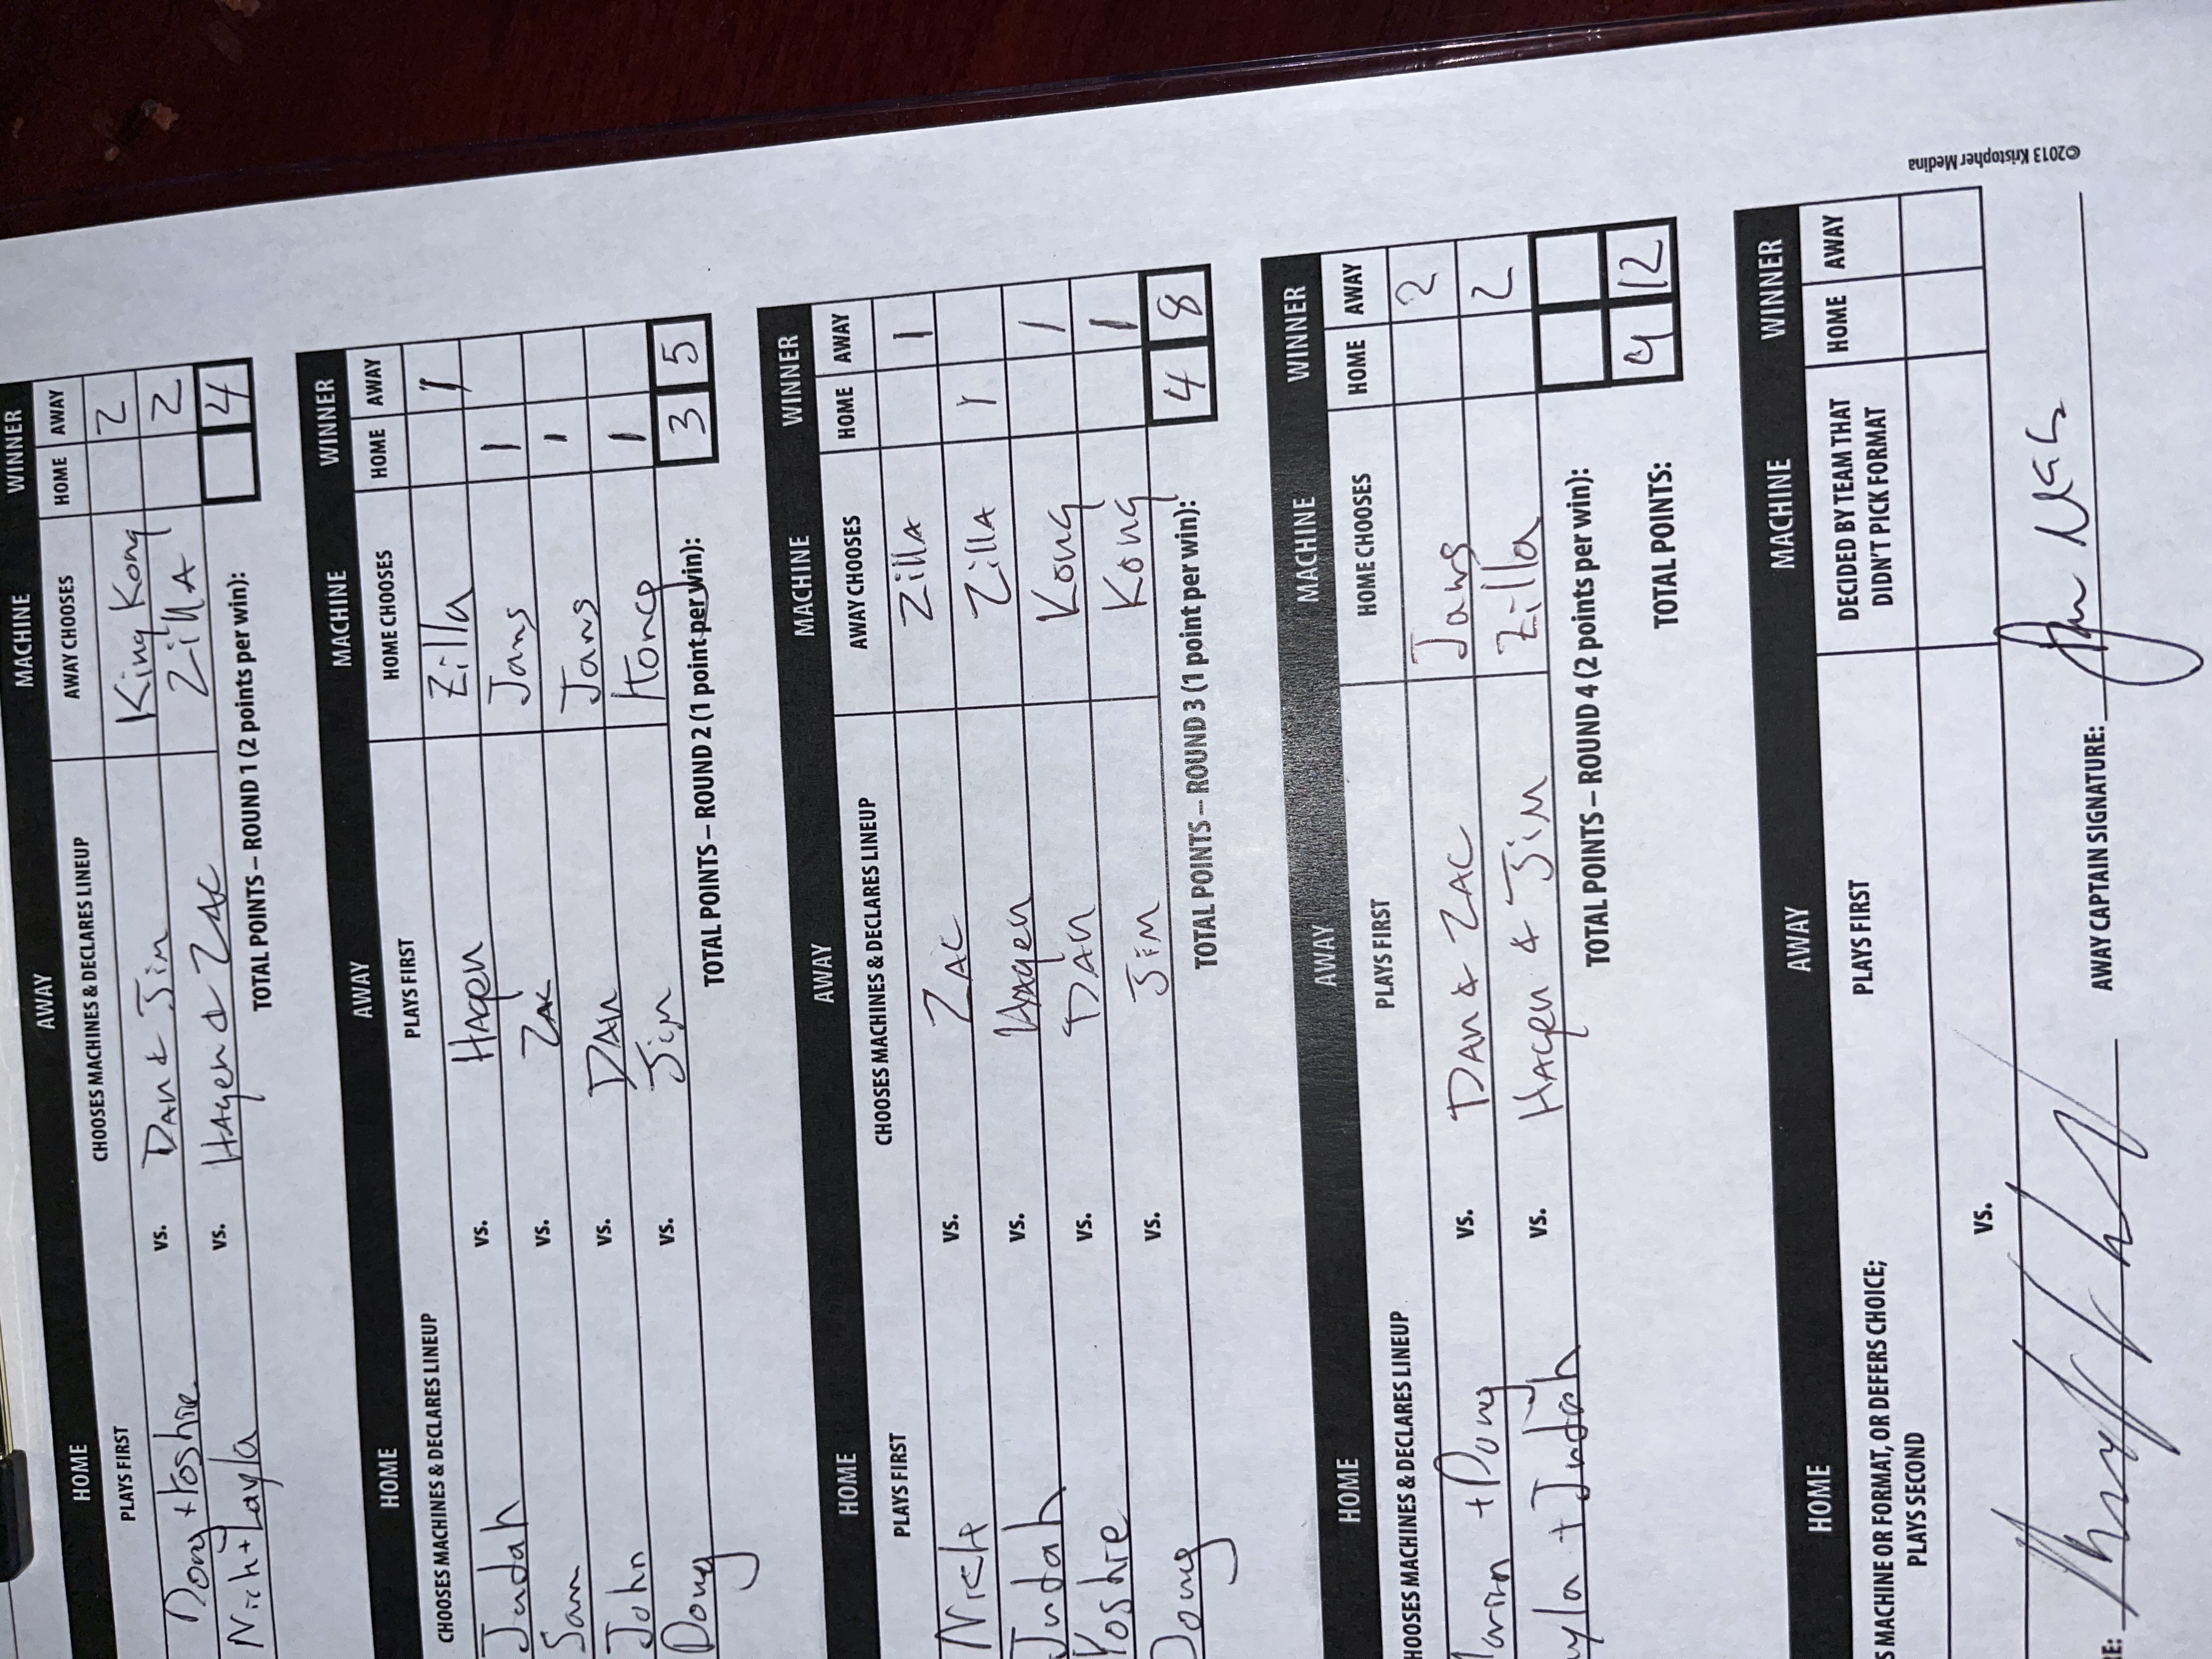 HOME AWAY MACHINE WINNER
PLAYS FIRST CHOOSES MACHINES & DECLARES LINEUP AWAY CHOOSES HOME AWAY
Doug + Yoshie vs. DAN & Jim King Kong 2
Nick + Layla vs. HAgen & ZAC ZillA 2
TOTAL POINTS – ROUND 1 (2 points per win): 4
HOME AWAY MACHINE WINNER
CHOOSES MACHINES & DECLARES LINEUP PLAYS FIRST HOME CHOOSES HOME AWAY
Judah vs. HAgen Zilla 1
Sam vs. ZAC Jaws 1
John vs. DAN Jaws 1
Doug vs. Jim Kong 1
TOTAL POINTS – ROUND 2 (1 point per win): 3 5
HOME AWAY MACHINE WINNER
PLAYS FIRST CHOOSES MACHINES & DECLARES LINEUP AWAY CHOOSES HOME AWAY
Nick vs. ZAC ZillA 1
Judah vs. HAgen ZillA 1
Yoshie vs. DAN Kong 1
Doug vs. Jim Kong 1
TOTAL POINTS – ROUND 3 (1 point per win): 4 8
HOME AWAY MACHINE WINNER
HOOSES MACHINES & DECLARES LINEUP PLAYS FIRST HOME CHOOSES HOME AWAY
+ Doug vs. DAN & ZAC Jaws 2
yla + Judah vs. HAgen & Jim Zilla 2
TOTAL POINTS – ROUND 4 (2 points per win):
TOTAL POINTS: 4 12
HOME AWAY MACHINE WINNER
S MACHINE OR FORMAT, OR DEFERS CHOICE;
PLAYS SECOND PLAYS FIRST DECIDED BY TEAM THAT
DIDN'T PICK FORMAT HOME AWAY
vs.
RE: AWAY CAPTAIN SIGNATURE:
©2013 Kristopher Medina